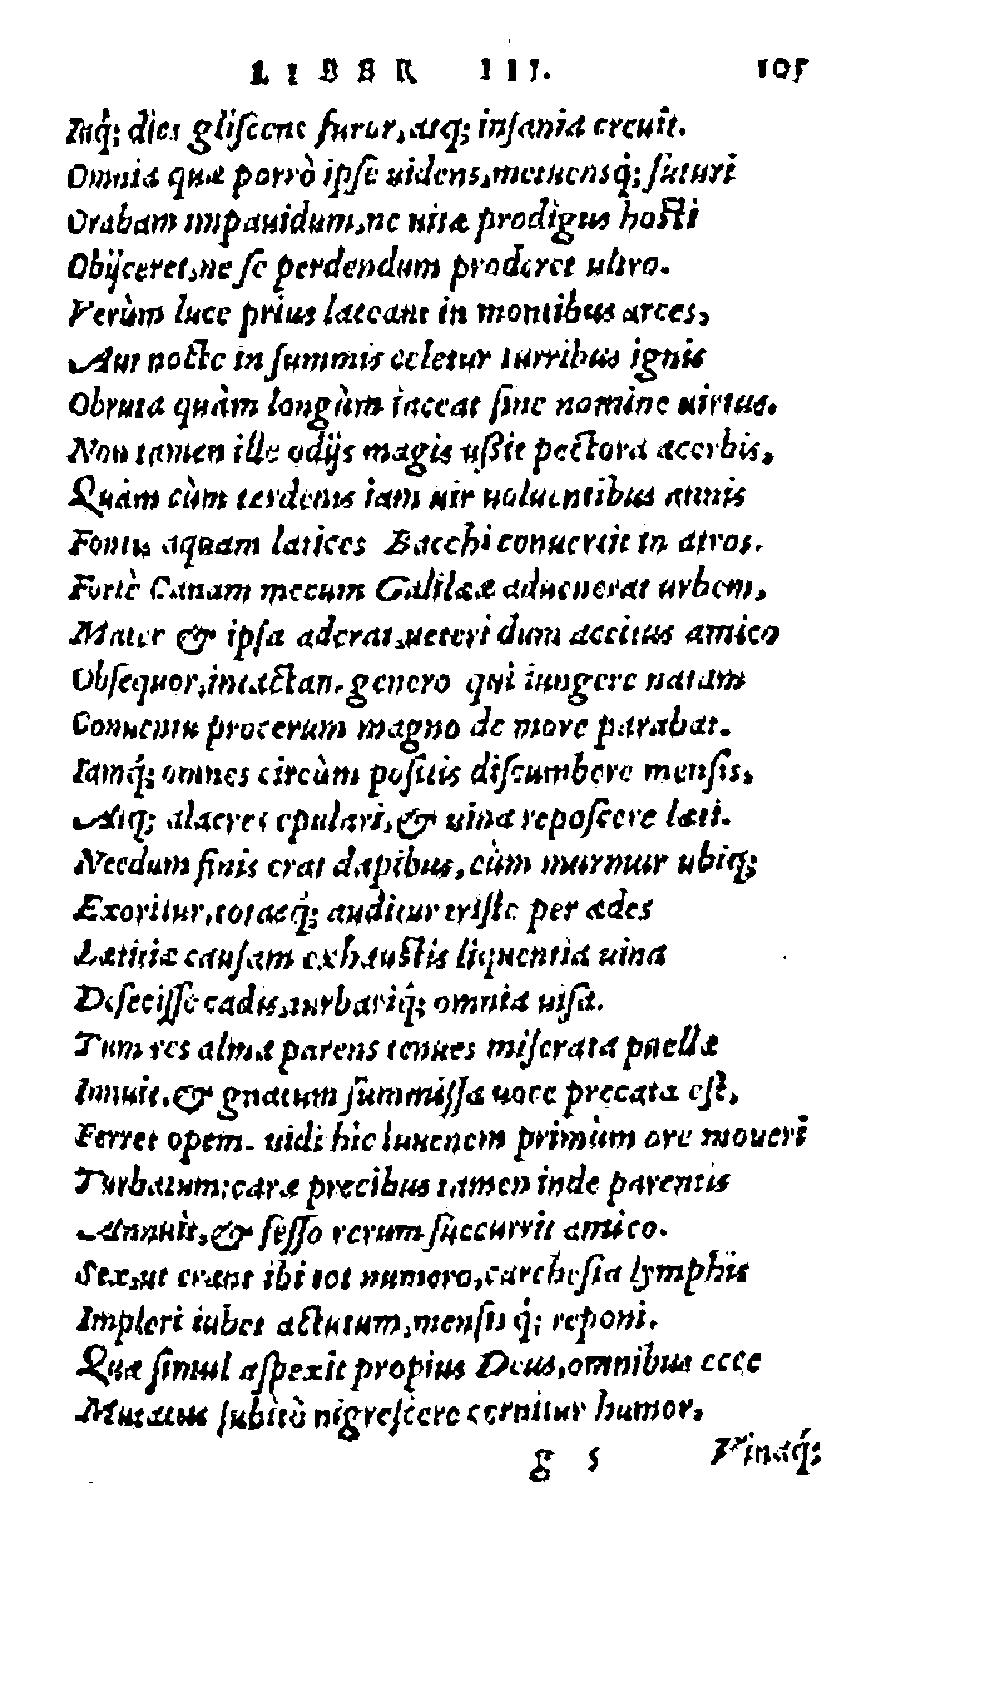 LIBER III. 105
Inq́; dies gliscens furor, atq; insania creuit.
Omnia quæ porrò ipse uidens, metuensq́; futuri
Orabam impauidum, ne uitæ prodigus hosti
Obijceret, ne se perdendum proderet ultro.
Verùm luce prius lateant in montibus arces,
Aut nocte in summis celetur turribus ignis
Obruta quàm longùm iaceat sine nomine uirtus.
Non tamen ille odijs magis ussit pectora acerbis,
Quàm cùm terdenis iam uir uoluentibus annis
Fontis aquam latices Bacchi conuertit in atros.
Fortè Canam mecum Galilææ aduenerat urbem,
Mater & ipsa aderat, ueteri dum accitus amico
Obsequor, intactam genero qui iungere natam
Conuentu procerum magno de more parabat.
Iamq́; omnes circùm positis discumbere mensis,
Atq; alacres epulari, & uina reposcere læti.
Necdum finis erat dapibus, cùm murmur ubiq;
Exoritur, totasq́; auditur triste per ædes
Lætitiæ causam exhaustis liquentia uina
Defecisse cadis, turbariq́; omnia uisa.
Tum res alma parens tenues miserata puellæ
Innuit, & gnatum summissa uoce precata est,
Ferret opem. uidi hîc iuuenem primùm ore moueri
Turbatum; caræ precibus tamen inde parentis
Annuit, & fesso rerum succurrit amico.
Sex, ut erant ibi tot numero, carchesia lymphis
Impleri iubet actutum, mensisq́; reponi.
Quæ simul aspexit propius Deus, omnibus ecce
Mutatus subitò nigrescere cernitur humor,
g 5 Vinaq́;